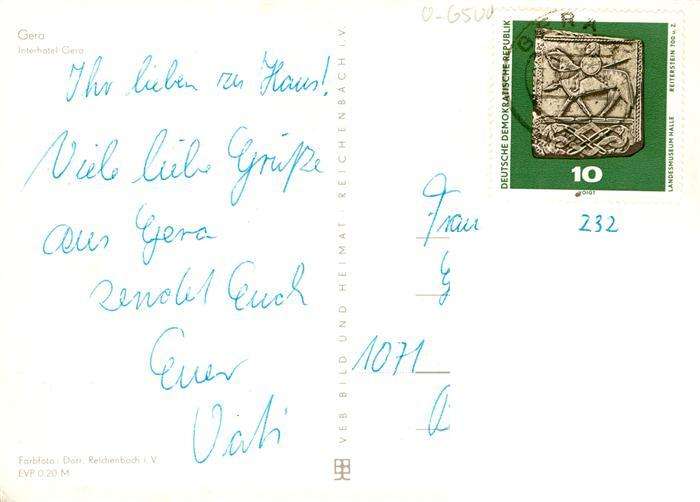 Gera
Interhotel Gera
Ihr lieben zu Haus!
Viele liebe Grüße
aus Gera
sendet Euch
Euer
Vati
Farbfoto: Darr, Reichenbach i. V.
EVP 0,20 M
VEB BILD UND HEIMAT · REICHENBACH I. V.
GERA
DEUTSCHE DEMOKRATISCHE REPUBLIK
10
VOIGT
REITERSTEIN 700 u. Z.
LANDESMUSEUM HALLE
232
Frau
G
1071